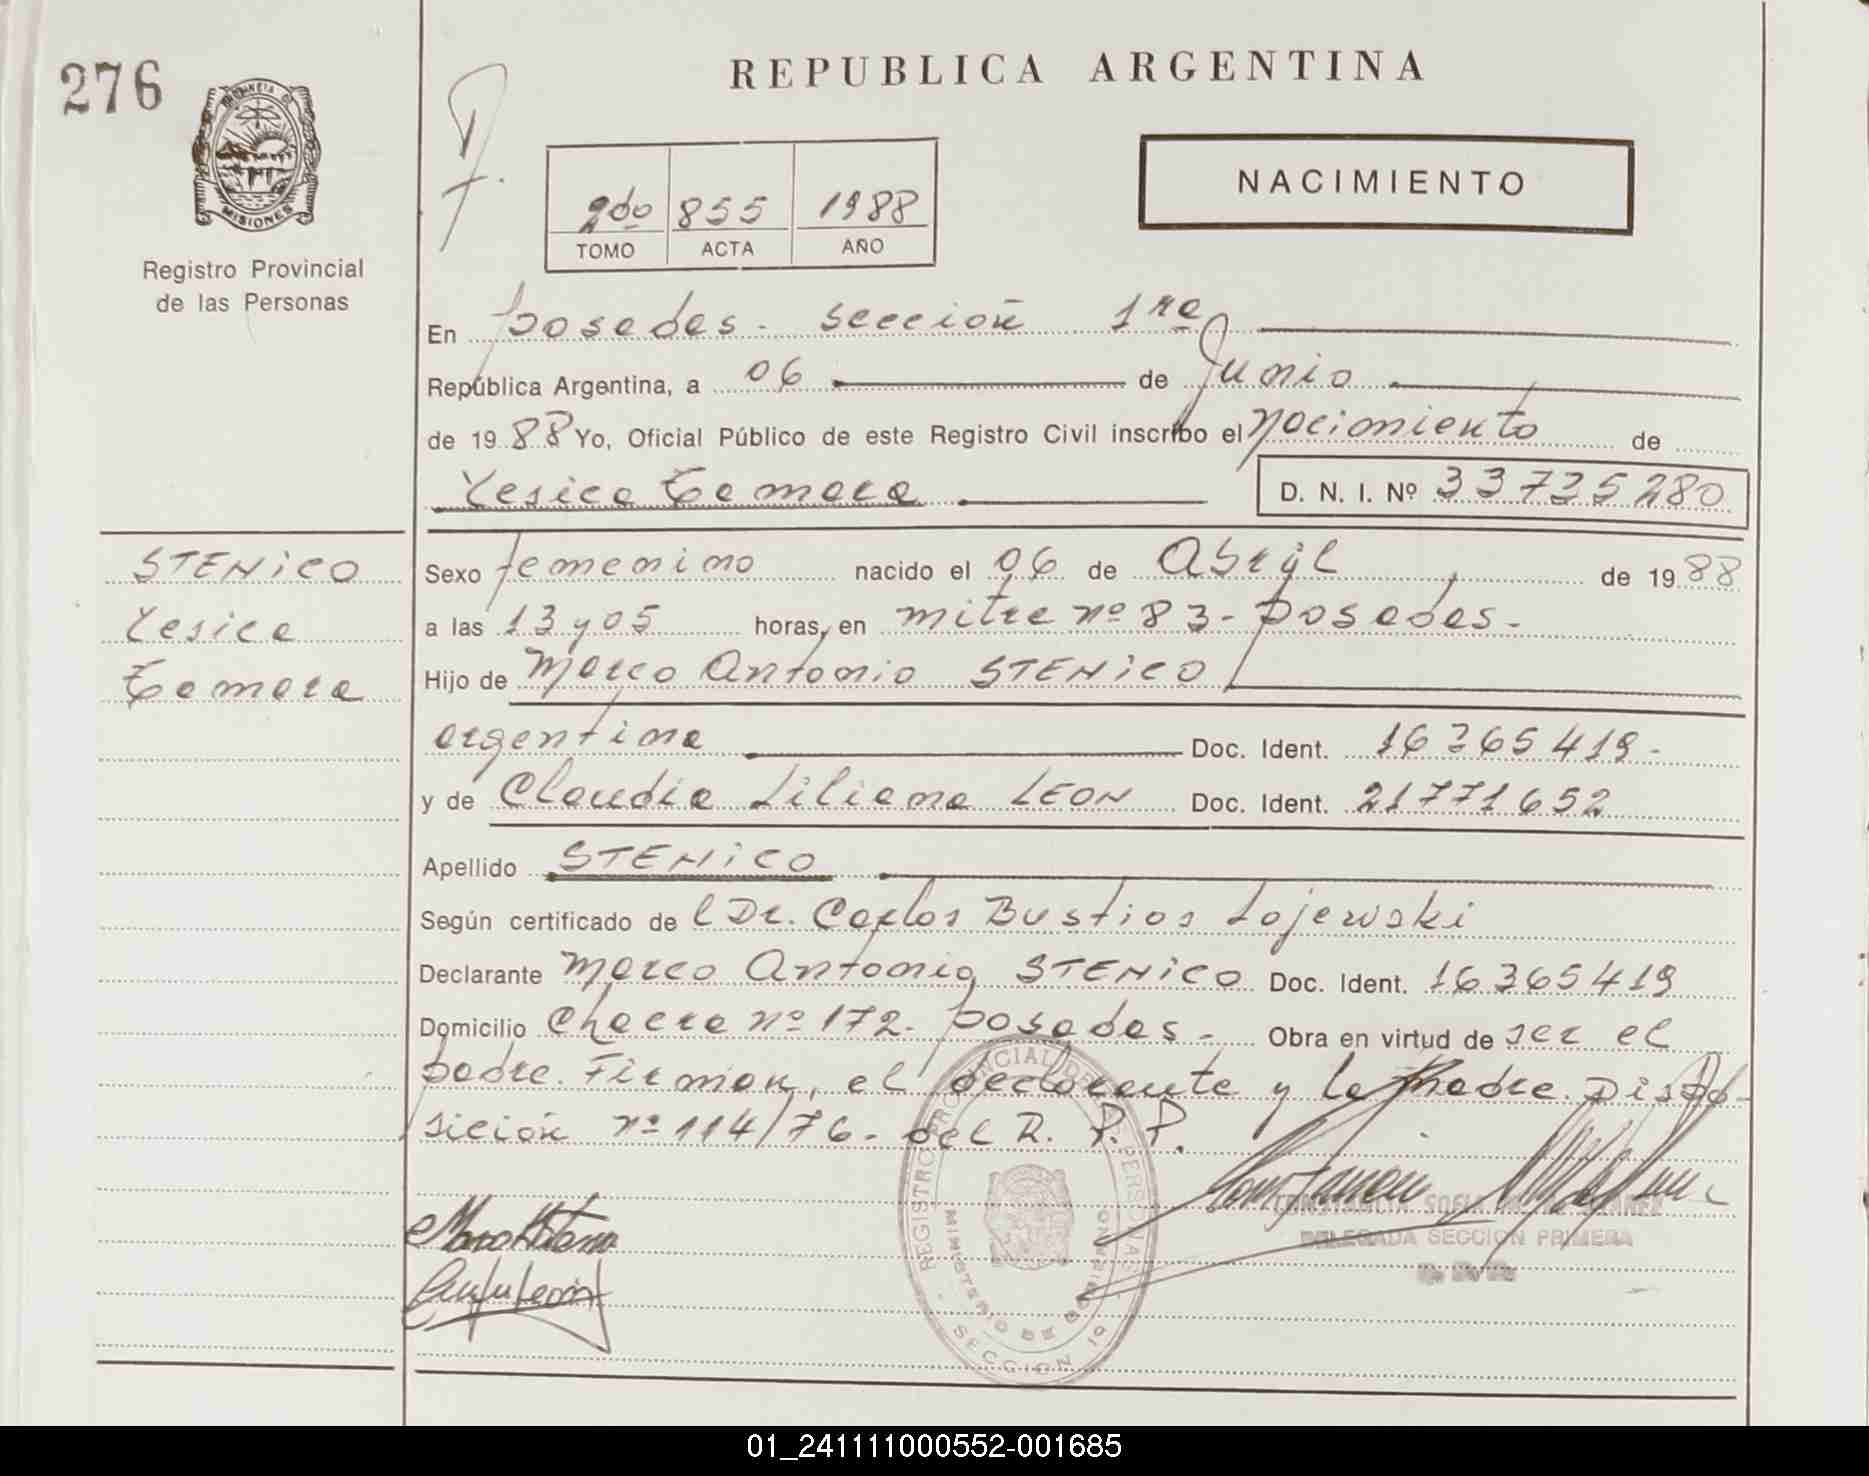 276
REPUBLICA ARGENTINA
PROVINCIA DE
MISIONES
Registro Provincial
de las Personas
2do 855 1988
TOMO ACTA AÑO
NACIMIENTO
En Posadas. Sección 1ra
República Argentina, a 06 de Junio
de 1988 Yo, Oficial Público de este Registro Civil inscribo el nacimiento de
Yesica Tamara D. N. I. Nº 33735280
STENiCO
Yesica
Tamara
Sexo femenino nacido el 06 de Abril de 1988
a las 13 y 05 horas, en mitre nº 83- Posadas.
Hijo de Marco Antonio STENiCO
argentina Doc. Ident. 16365419-
y de Claudia Liliana LEON Doc. Ident. 21771652
Apellido STENiCO
Según certificado de l Dr. Carlos Bustios Lojewski
Declarante Marco Antonio STENiCO Doc. Ident. 16365419
Domicilio Chacra nº 172. Posadas. Obra en virtud de ser el
padre. Firman, el declarante y la Madre. Dispo-
sición nº 114/76- del R. P. P.
REGISTRO PROVINCIAL DE LAS PERSONAS
MINISTERIO DE GOBIERNO
SECCION 1a
CONSTANCIA SOFIA
DELEGADA SECCION PRIMERA
01_241111000552-001685